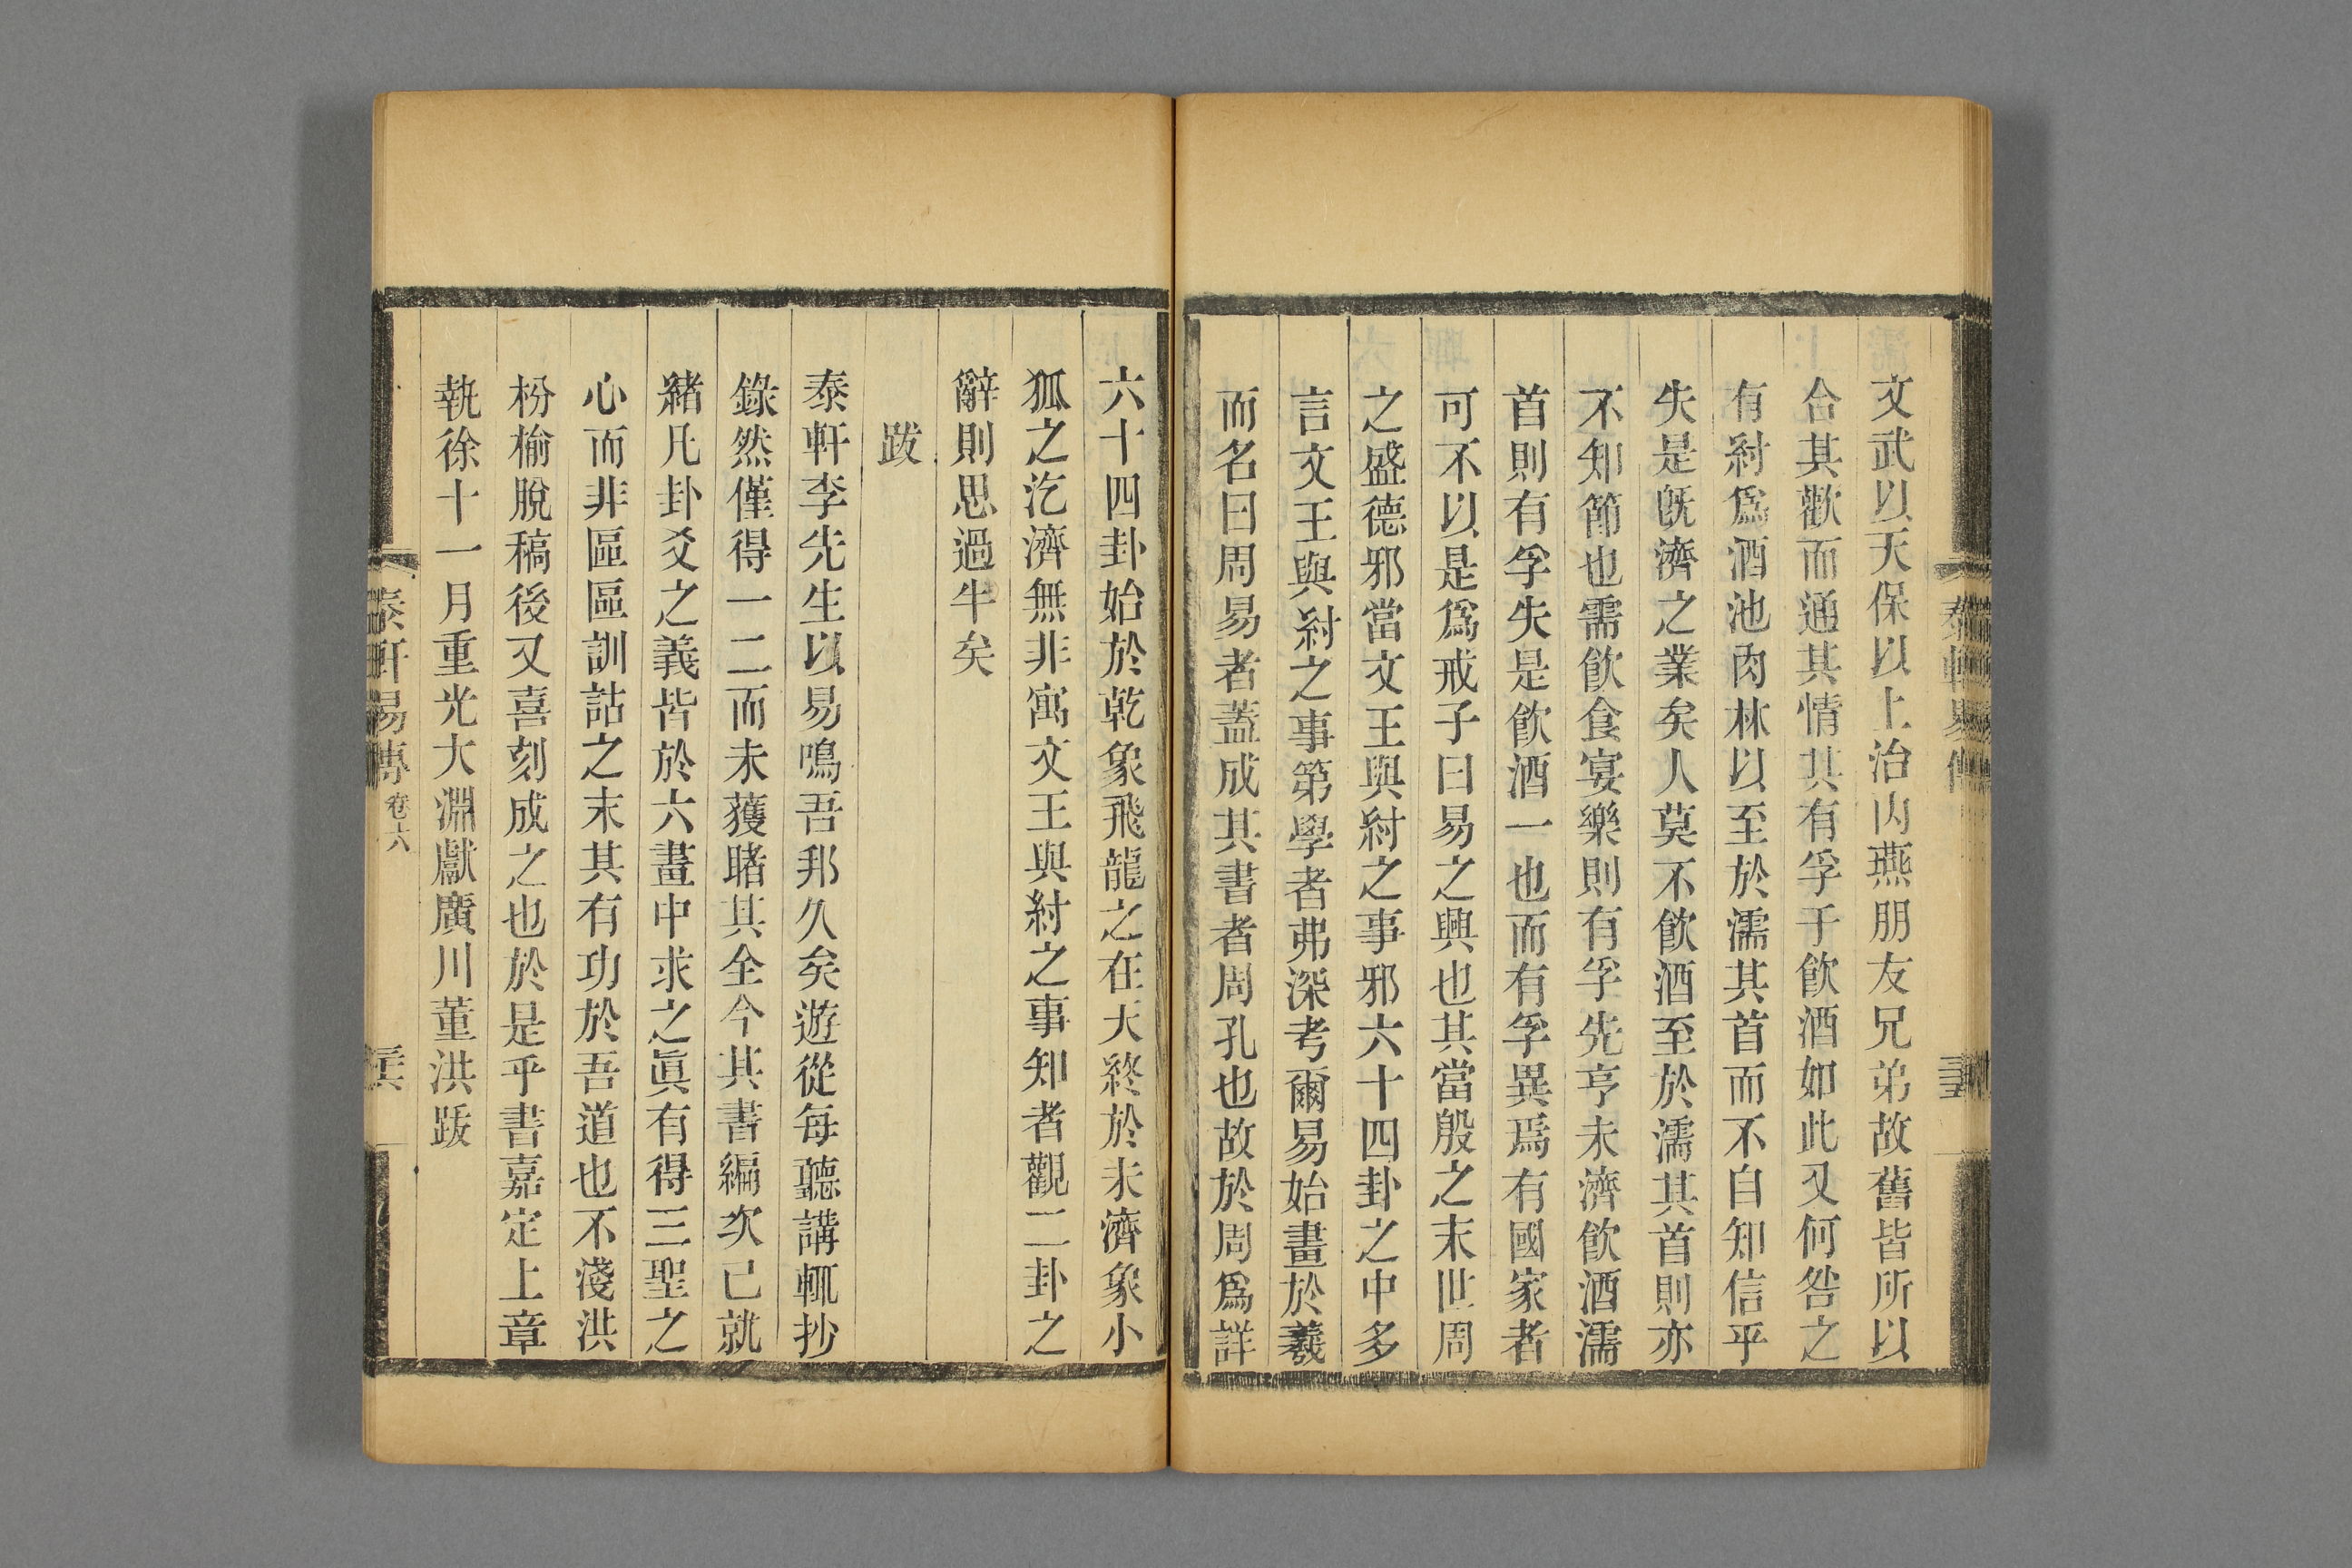 文武以天保以上治内燕朋友兄弟故舊皆所以
合其歡而通其情其有孚于飲酒如此又何咎之
有紂爲酒池肉林以至於濡其首而不自知信乎
失是旣濟之業矣人莫不飲酒至於濡其首則亦
不知節也需飲食宴樂則有孚先亨未濟飲酒濡
首則有孚失是飲酒一也而有孚異焉有國家者
可不以是爲戒子曰易之興也其當殷之末世周
之盛德邪當文王與紂之事邪六十四卦之中多
言文王與紂之事第學者弗深考爾易始畫於羲
而名曰周易者蓋成其書者周孔也故於周爲詳
六十四卦始於乾象飛龍之在天終於未濟象小
狐之汔濟無非寓文王與紂之事知者觀二卦之
辭則思過半矣
跋
泰軒李先生以易鳴吾邦久矣遊從每聽講輒抄
錄然僅得一二而未獲睹其全今其書編次已就
緒凡卦爻之義皆於六畫中求之眞有得三聖之
心而非區區訓詁之末其有功於吾道也不淺洪
枌榆脫稿後又喜刻成之也於是乎書嘉定上章
執徐十一月重光大淵獻廣川董洪跋
泰軒易傳 卷六